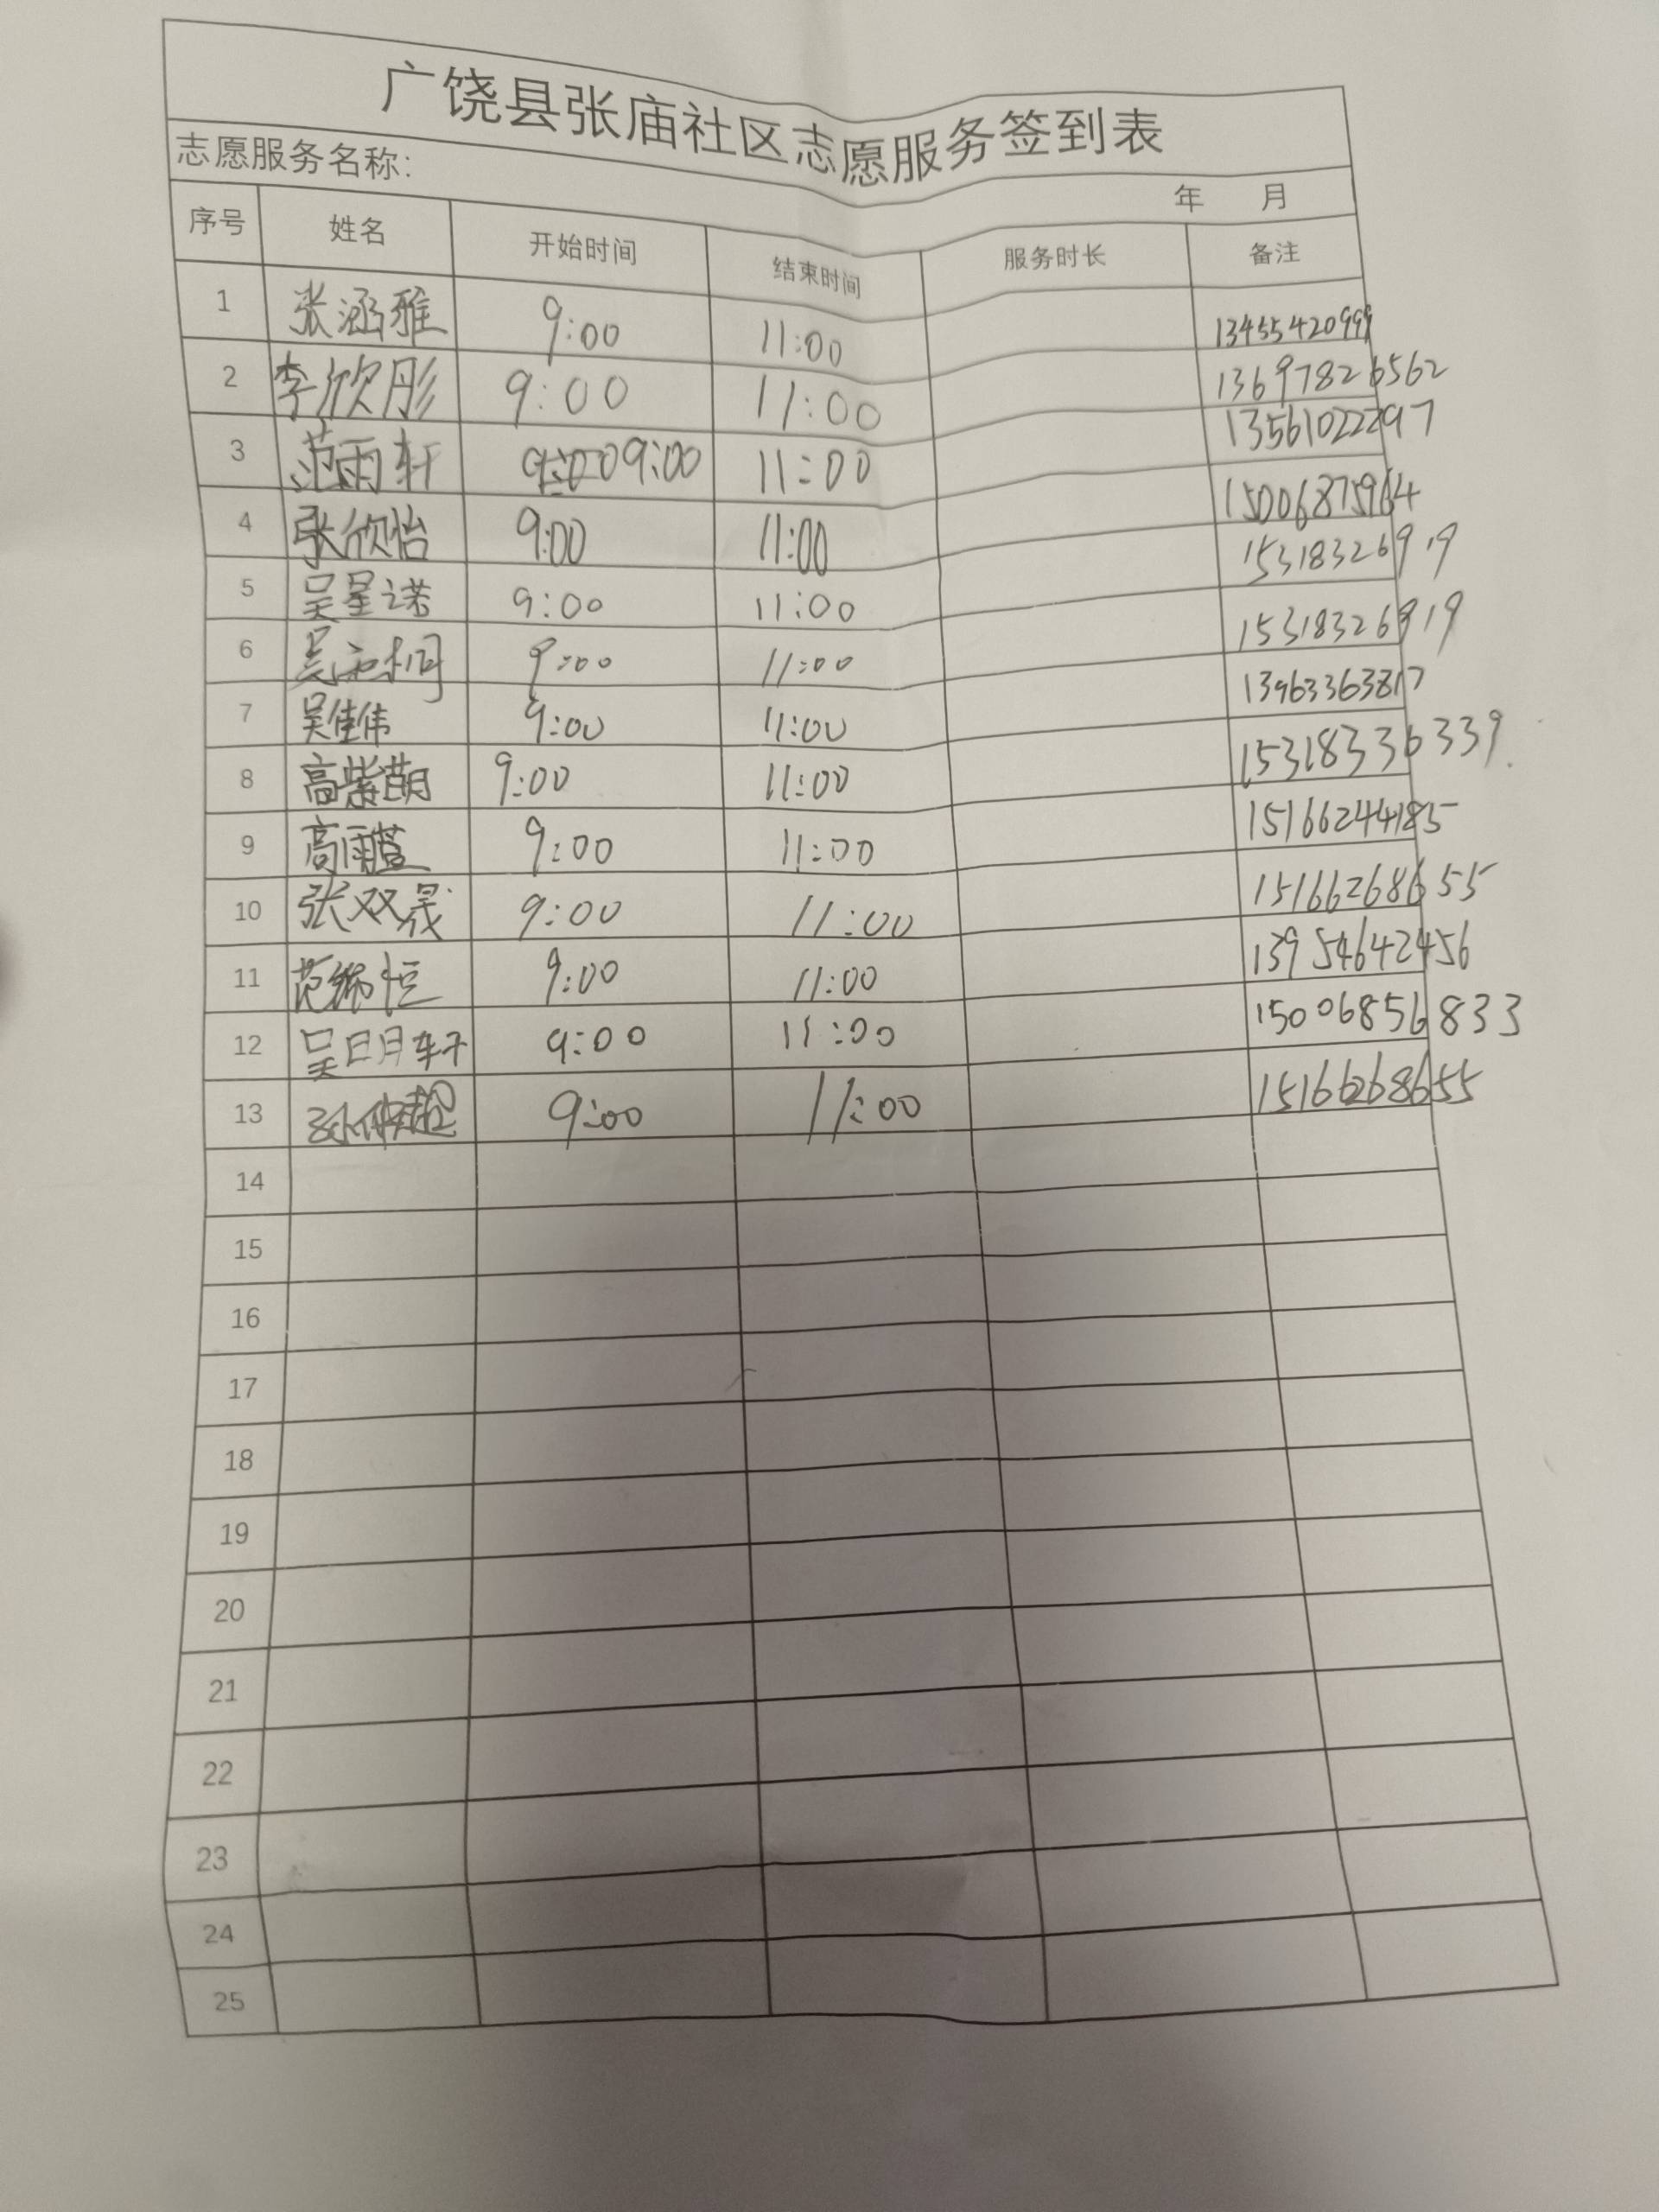 广饶县张庙社区志愿服务签到表
志愿服务名称：
年 月
序号 姓名 开始时间 结束时间 服务时长 备注
1 张涵雅 9:00 11:00 13455420999
2 李欣彤 9:00 11:00 13697826562
3 范雨轩 9:00 11:00 13561022297
4 张欣怡 9:00 11:00 15006875964
5 吴星诺 9:00 11:00 15318326919
6 吴 9:00 11:00 15318326919
7 吴佳伟 9:00 11:00 13963363817
8 高紫萌 9:00 11:00 15318336339
9 高雨萱 9:00 11:00 15166244185
10 张双晟 9:00 11:00 15166268655
11 范 恒 9:00 11:00 13954642456
12 吴明轩 9:00 11:00 15006856833
13 9:00 11:00 15166268655
14
15
16
17
18
19
20
21
22
23
24
25